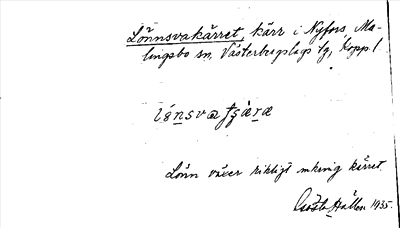 Lönnsvakärret, kärr i Nyfors, Ma-
lingsbo sn, Västerbergslags tg, Kopp l.
Lönn växer rikligt omkring kärret.
Gösta Hallen 1935.